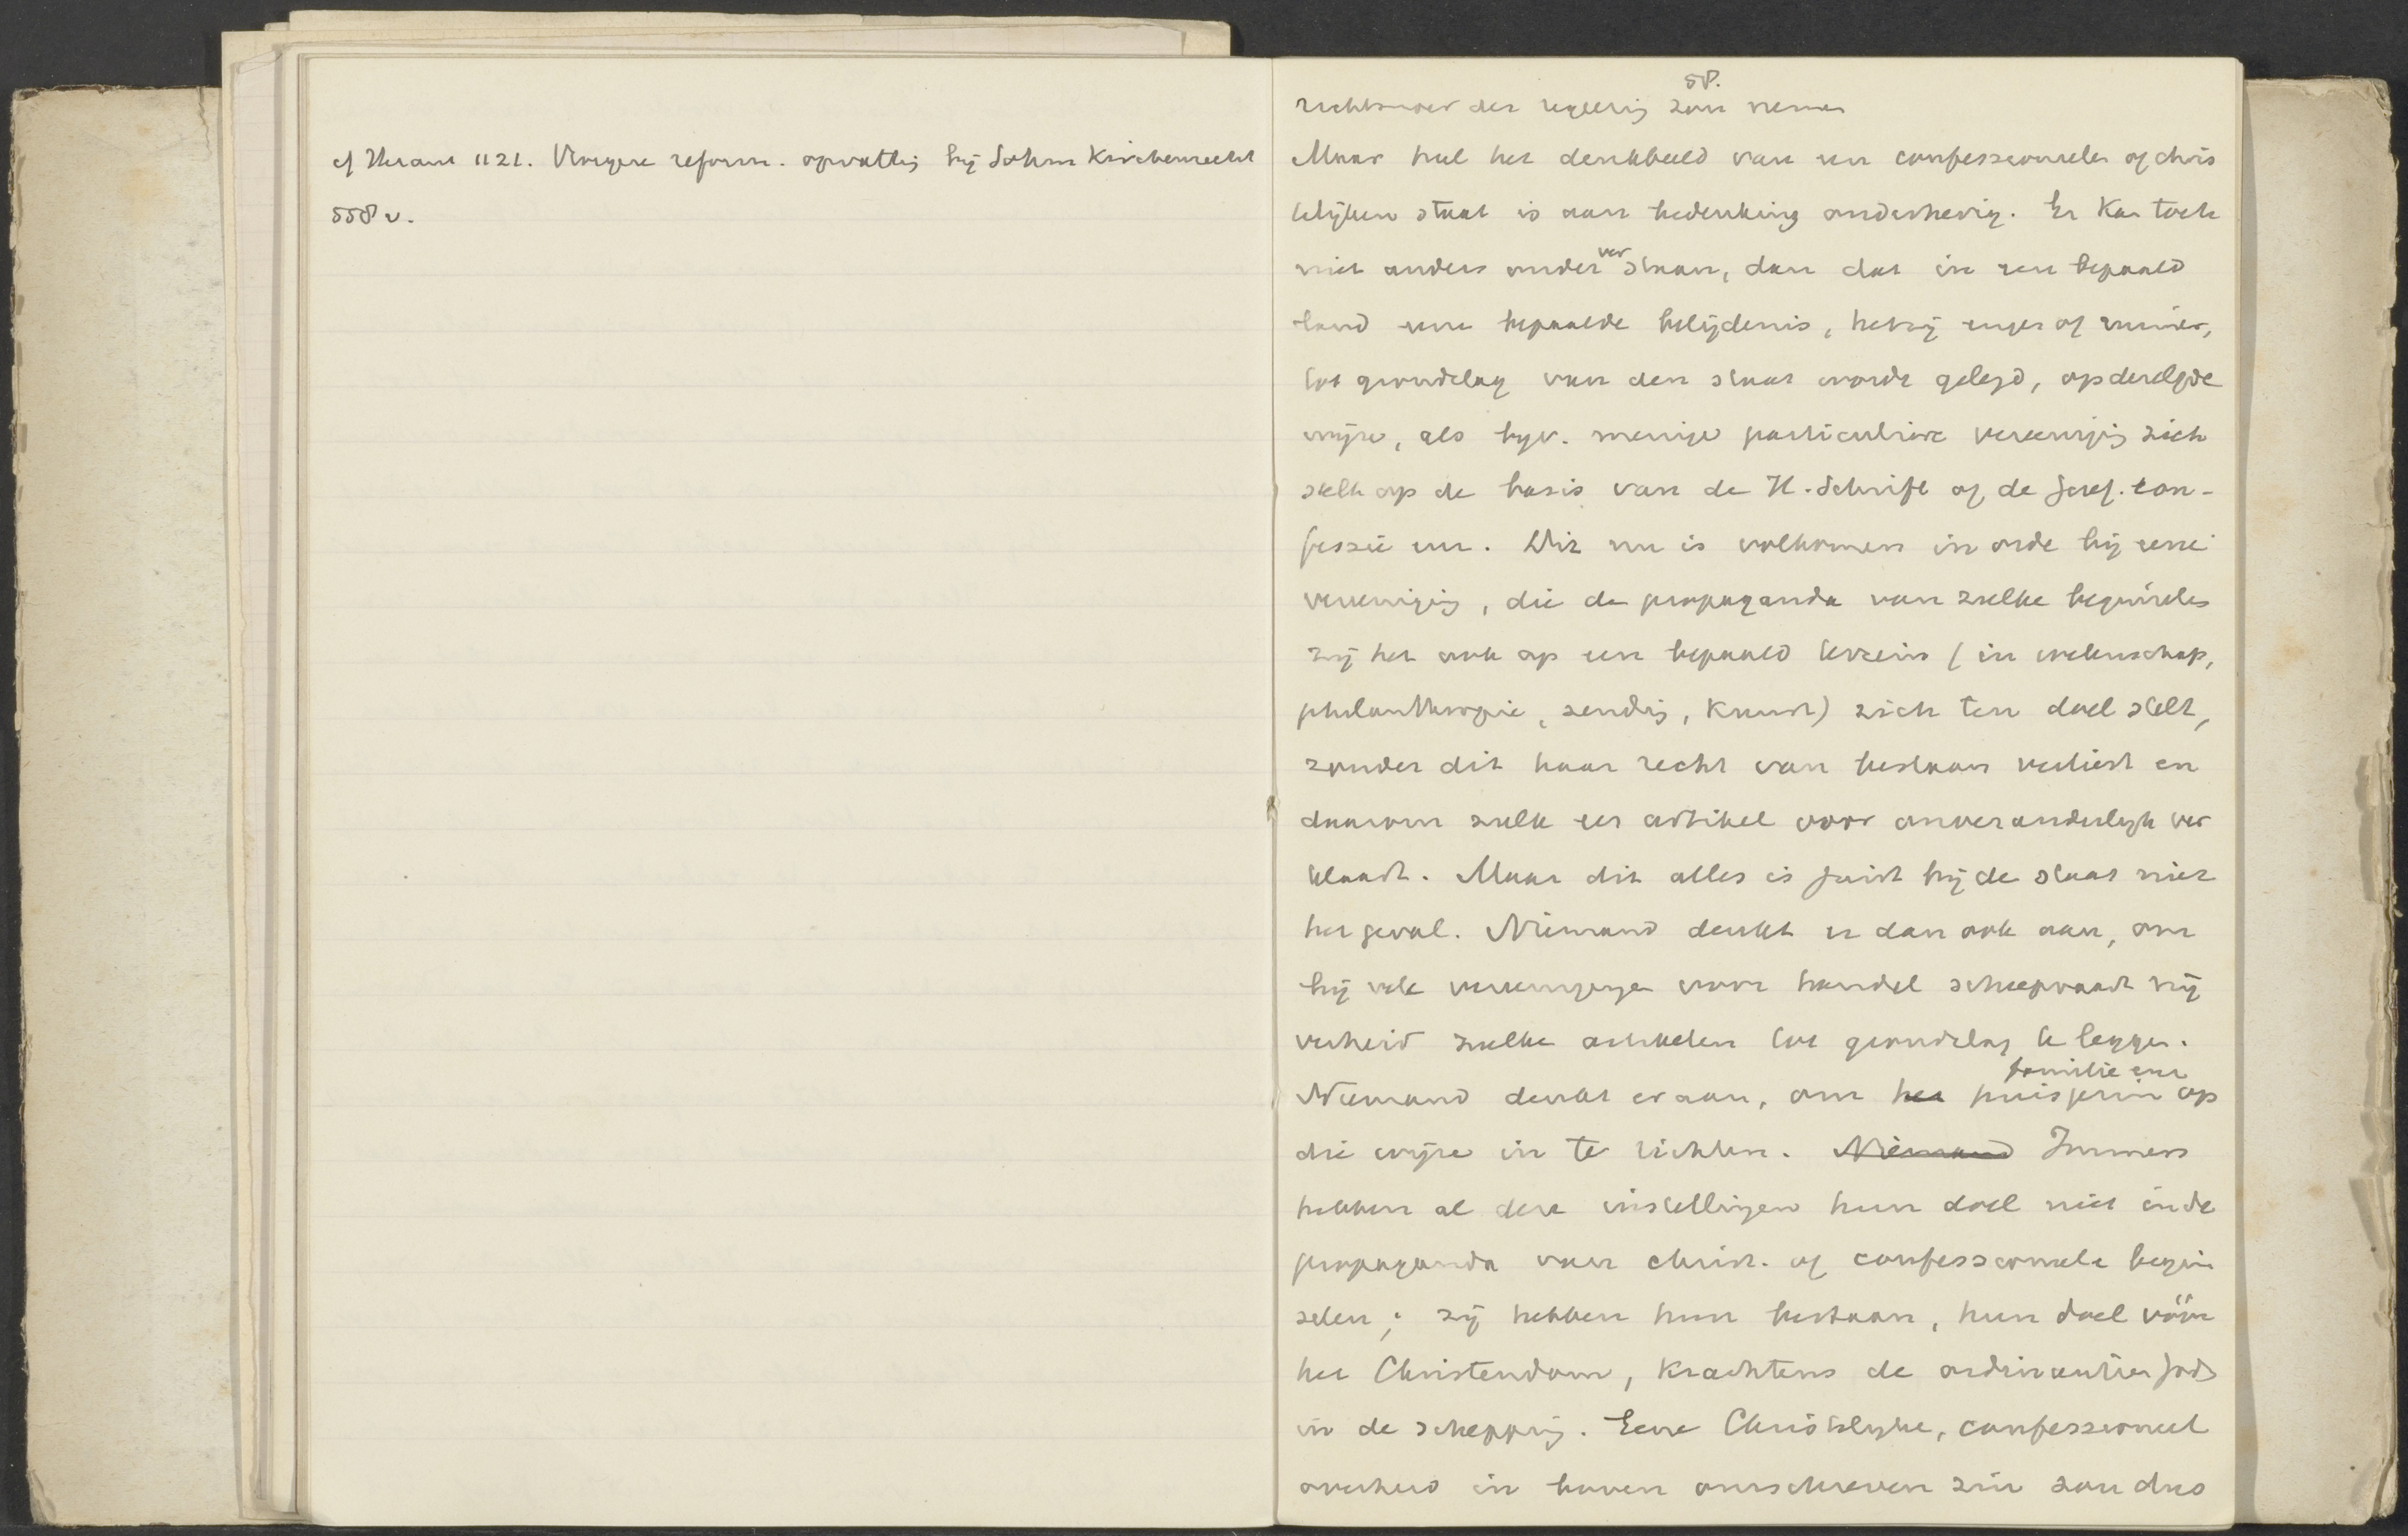 cf Heraut 1121. Vroegere reform. opvatting bij Sohm Kirchenrecht
558 v.
58.
der regeering zou nemen
Maar heel het denkbeeld van een confessioneelen of chris
telijken staat is aan bedenking onderhevig. Er kan toch
niet anders onder verstaan, dan dat in een bepaald
land eene bepaalde belijdenis, hetzij enger of ruimer,
tot grondslag van den staat wordt gelegd, op dezelfde
wijze, als bijv. menige particuliere vereeniging zich
stelt op de basis van de H. Schrift of de Geref. con-
fessie enz. Dit nu is volkomen in orde bij eene
vereeniging, die de propaganda van zulke beginselen
zij het ook op een bepaald terrein (in wetenschap,
philanthropie, zending, kunst) zich ten doel stelt,
zonder dit haar recht van bestaan verliest en
daarom zulk een artikel voor onveranderlijk ver
klaart. Maar dit alles is juist bij de staat niet
het geval. Niemand denkt er dan ook aan, om
bij vele vereenigingen voor handel scheepvaart nij
verheid zulke artikelen tot grondslag te leggen.
familie enz
Niemand denkt er aan, om het huisgezin op
die wijze in te richten. Niemand Immers
hebben al deze instellingen hun doel niet in de
propaganda van christ. of confessioneele begin
selen; zij hebben hun bestaan, hun doel vóór
het Christendom, krachtens de ordinantien Gods
in de schepping. Eene Christelijke, confessioneel
overheid in boven omschreven zin zou dus